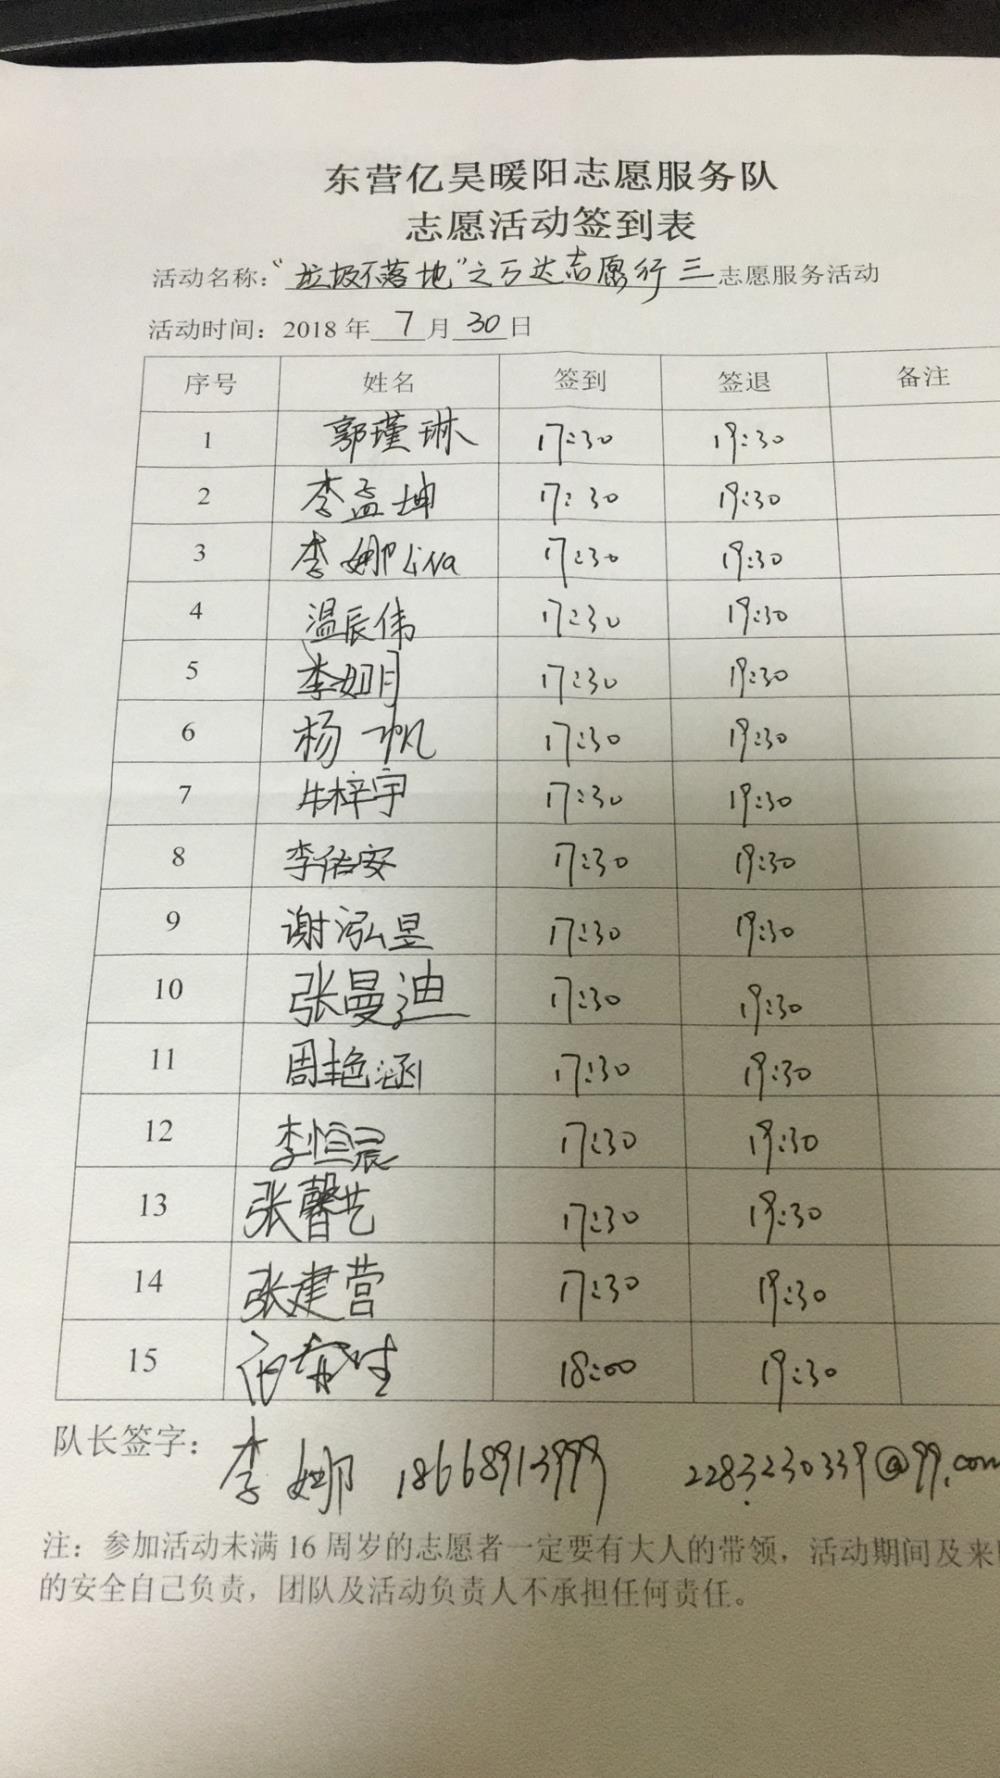 东营亿昊暖阳志愿服务队
志愿活动签到表
活动名称：“垃圾不落地”之万达志愿行三志愿服务活动
活动时间：2018年7月30日
序号 姓名 签到 签退 备注
1 郭瑾琳 17:30 19:30
2 李孟坤 17:30 19:30
3 李娜 Lina 17:30 19:30
4 温辰伟 17:30 19:30
5 李如月 17:30 19:30
6 杨帆 17:30 19:30
7 牛梓宇 17:30 19:30
8 李佑安 17:30 19:30
9 谢泓昱 17:30 19:30
10 张曼迪 17:30 19:30
11 周艳涵 17:30 19:30
12 李恒晨 17:30 19:30
13 张馨艺 17:30 19:30
14 张建营 17:30 19:30
15 18:00 19:30
队长签字：李娜 18668913999 2283230339@qq.com
注：参加活动未满16周岁的志愿者一定要有大人的带领，活动期间及来
的安全自己负责，团队及活动负责人不承担任何责任。